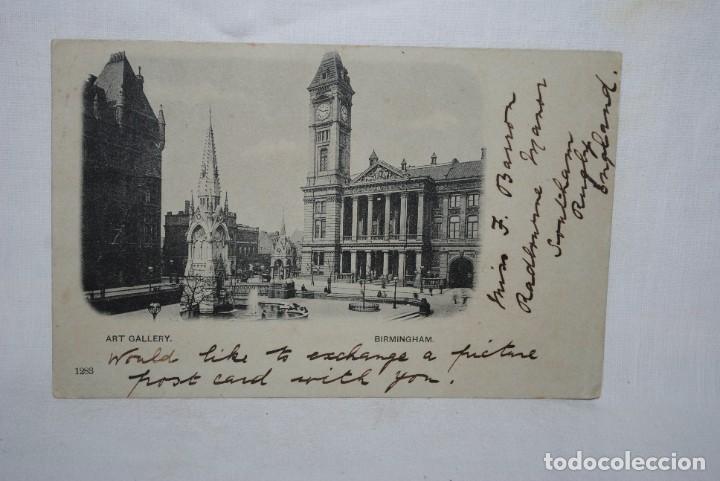 ART GALLERY.
BIRMINGHAM.
1283
Would like to exchange a picture
post card with you.
Miss F. Barron
Radbourne Manor
Southam
Rugby
England.
todocoleccion.net